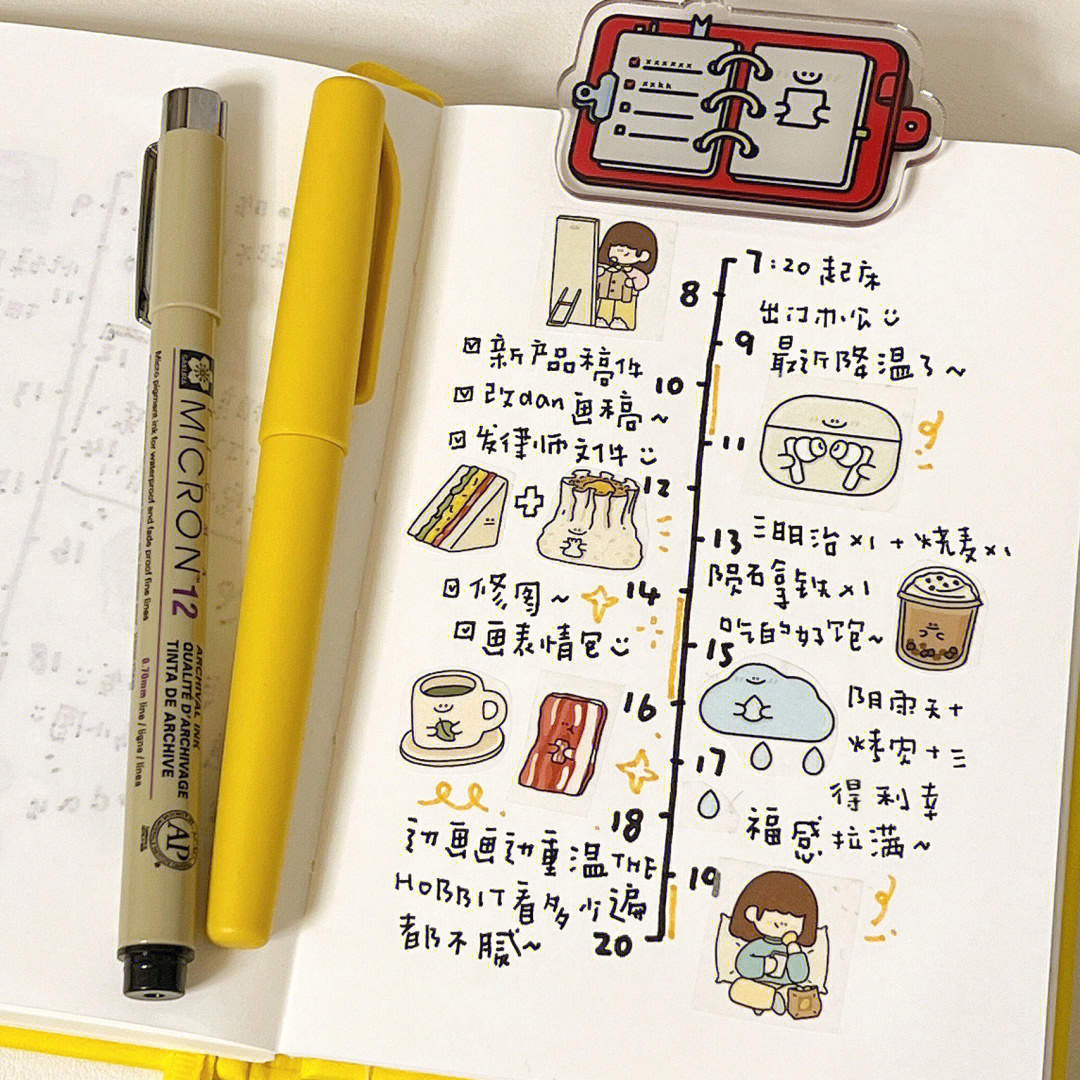 MICRON™ 12
ARCHIVAL INK
QUALITÉ D'ARCHIVAGE
TINTA DE ARCHIVE
Micro pigment ink for waterproof and fade proof fine lines
0.70mm line / ligne / lines
AP
xxxxxx
xxxx
7:20 起床
8
出门办公
9
最近降温了~
新产品稿件
10
改dan画稿~
11
发律师文件
12
13
三明治x1 + 烧麦x1
陨石拿铁x1
修图~
14
吃的好饱~
画表情包
15
16
阴雨天+
烤肉+三
17
得利幸
福感拉满~
18
动画画动重温THE
19
HOBBIT看多少遍
都不腻~
20